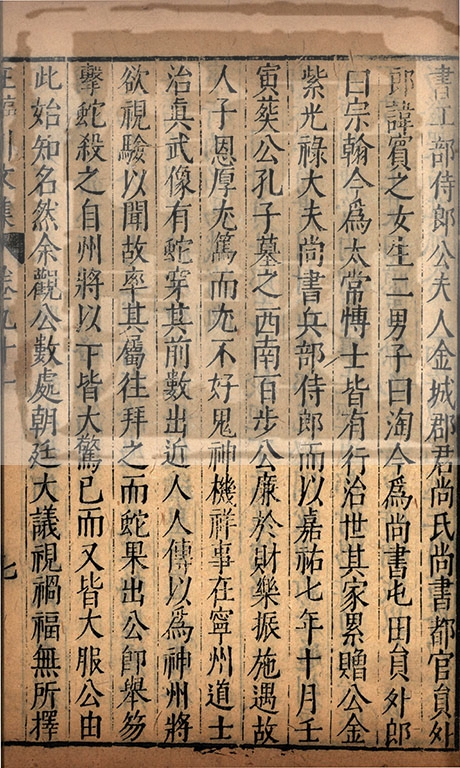 書工部侍郎公夫人金城郡君尚氏尚書都官員外
郎諱賓之女生二男子曰淘今爲尚書屯田員外郎
曰宗翰今爲太常博士皆有行治世其家累贈公金
紫光祿大夫尚書兵部侍郎而以嘉祐七年十月壬
寅葬公孔子墓之西南百步公廉於財樂振施遇故
人子恩厚尤篤而尤不好鬼神禨祥事在寧州道士
治眞武像有蛇穿其前數出近人人傳以爲神州將
欲視驗以聞故率其屬往拜之而蛇果出公卽舉笏
擊蛇殺之自州將以下皆大驚已而又皆大服公由
此始知名然余觀公數處朝廷大議視禍福無所擇
王臨川文集 卷九十一 七